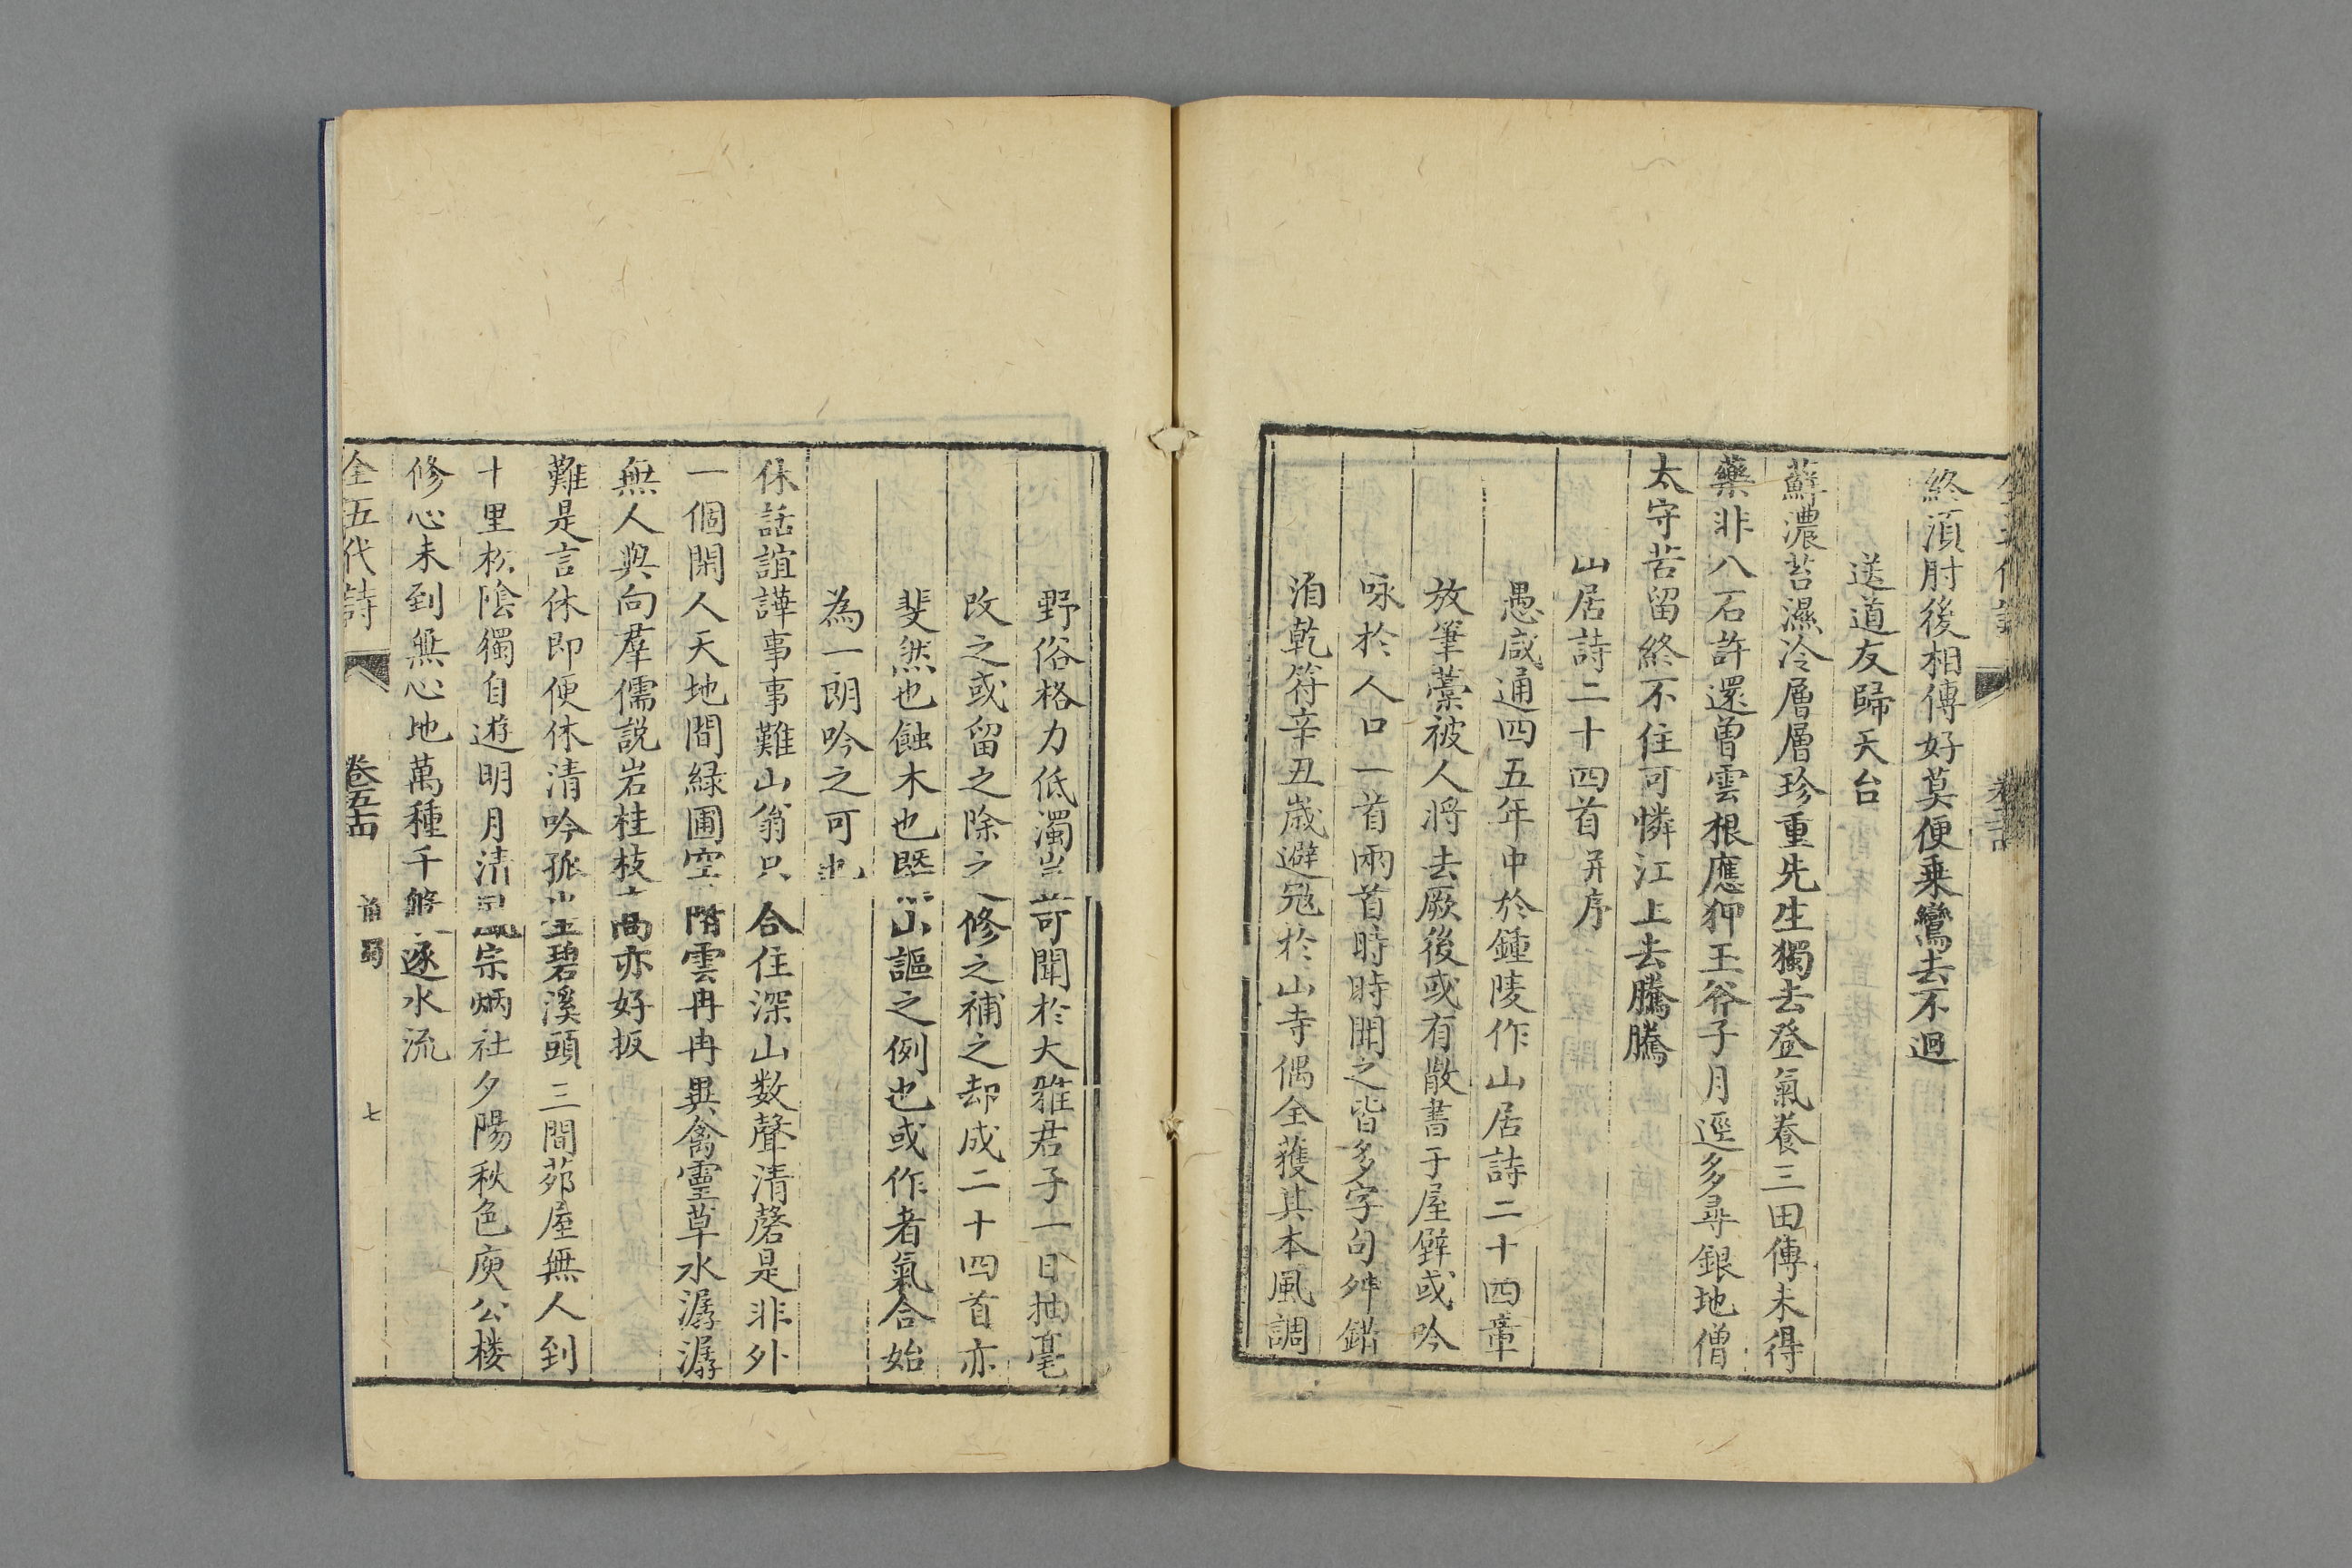 終須肘後相傳好莫便乗鸞去不迴
送道友歸天台
蘚濃苔濕冷層層珍重先生獨去登氣養三田傳未得
藥非八石許還曾雲根應狎玉斧子月逕多尋銀地僧
太守苦留終不住可憐江上去騰騰
山居詩二十四首并序
愚咸通四五年中於鍾陵作山居詩二十四章
放筆藳被人將去厥後或有散書于屋壁或吟
咏於人口一首兩首時時聞之皆多字句舛錯
洎乾符辛丑嵗避宼於山寺偶全獲其本風調
野俗格力低濁豈可聞於大雅君子一日抽毫
改之或留之除之修之補之却成二十四首亦
斐然也蝕木也旣山謳之例也或作者氣合始
為一朗吟之可也
休話諠譁事事難山翁只合住深山数聲清磬是非外
一個閑人天地間緑圃空階雲冉冉異禽靈草水潺潺
無人與向羣儒説岩桂枝高亦好扳
難是言休即便休清吟孤坐碧溪頭三間茆屋無人到
十里松陰獨自遊明月清風宗炳社夕陽秋色庾公楼
修心未到無心地萬種千般逐水流
全五代詩 卷五十四 前蜀 七